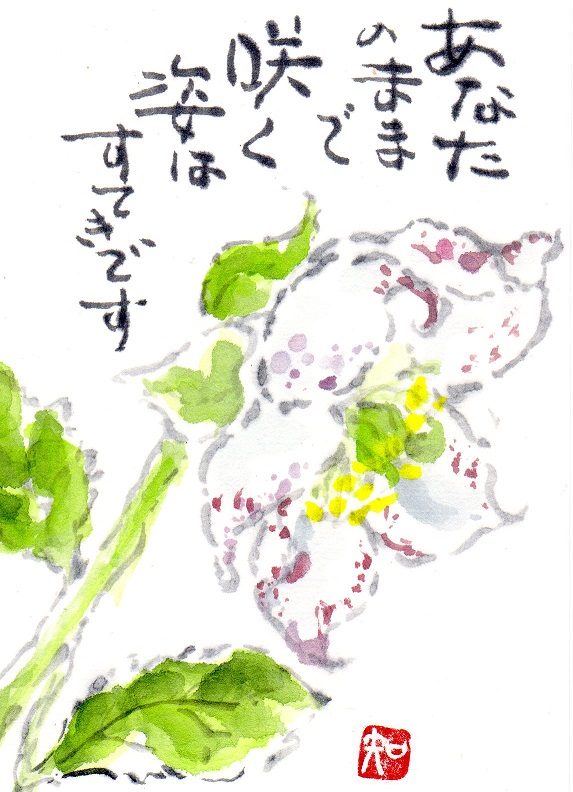 あなた
のまま
で
咲く
姿は
すてきです
知